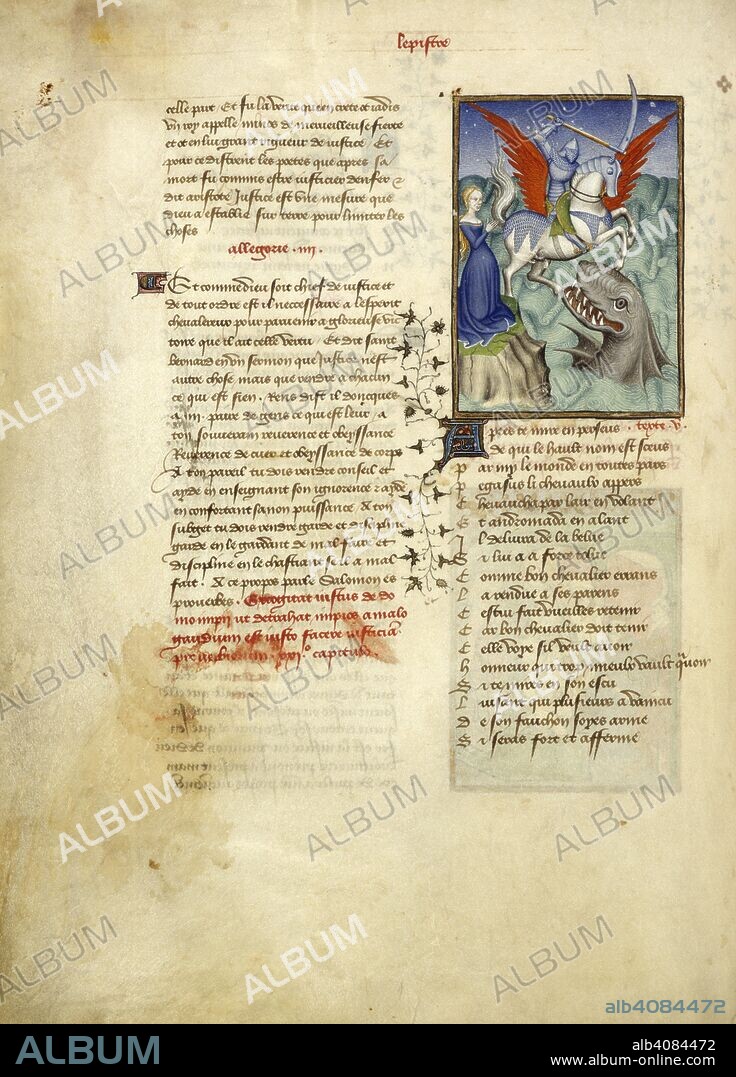 lepistre
celle part / Et fu la verite que en crete et iadis
vn roy appelle minos de merueilleuse fierte
et ot en lui grant rigueur de iustice / Et
pour ce distrent les poetes que apres sa
mort fu commis estre iusticier denfer &
dit aristote Justice est vne mesure que
dieu a establie sur terre pour limiter les
choses
allegorie . iiij .
Et comme dieu soit chief de iustice et
de tout ordre est il necessaire a lesperit
cheualereux pour paruenir a glorieuse vic
toire que il ait celle vertu / Et dit saint
bernard en vn sermon que Justice nest
autre chose mais que rendre a chacun
ce qui est sien . Rens dist il doncques
a .iij. paire de gens ce qui est leur / a
ton souuerain reuerence et obeyssance
Reuerence de cuer et obeyssance de corps
A ton pareil tu dois rendre conseil et
ayde en enseignant son ignorence & ayde
en confortant sa non puissance A ton
subget tu dois rendre garde et discipline
garde en le gardant de mal faire et
discipline en le chastiant se il a mal
fait . A ce propos parle Salomon es
prouerbes . Excogitat iustus de do
mo impij ut detrahat impios a malo
gaudium est iusto facere iusticiam
prouerbiorum . xxi.º capitulo .
Apres te mire en perseus . texte v.
de qui le hault nom est sceus
par my le monde en toutes pars
pegasus li cheuaulx appers
Cheuaucha par lair en volant
Et andromada en alant
Il deliura de la belue
Si lui a a force tolue
Comme bon cheualier errans
La rendue a ses parens
Cestui fait vueilles retenir
Car bon cheualier doit tenir
Celle voye sil veult auoir
Honneur qui trop mieulx vault quauoir
Si te mires en son escu
Luisant qui plusieurs a vaincu
De son fauchon soyes arme
Si seras fort et afferme
ALBUM
alb4084472
ALBUM
alb4084472
www.album-online.com